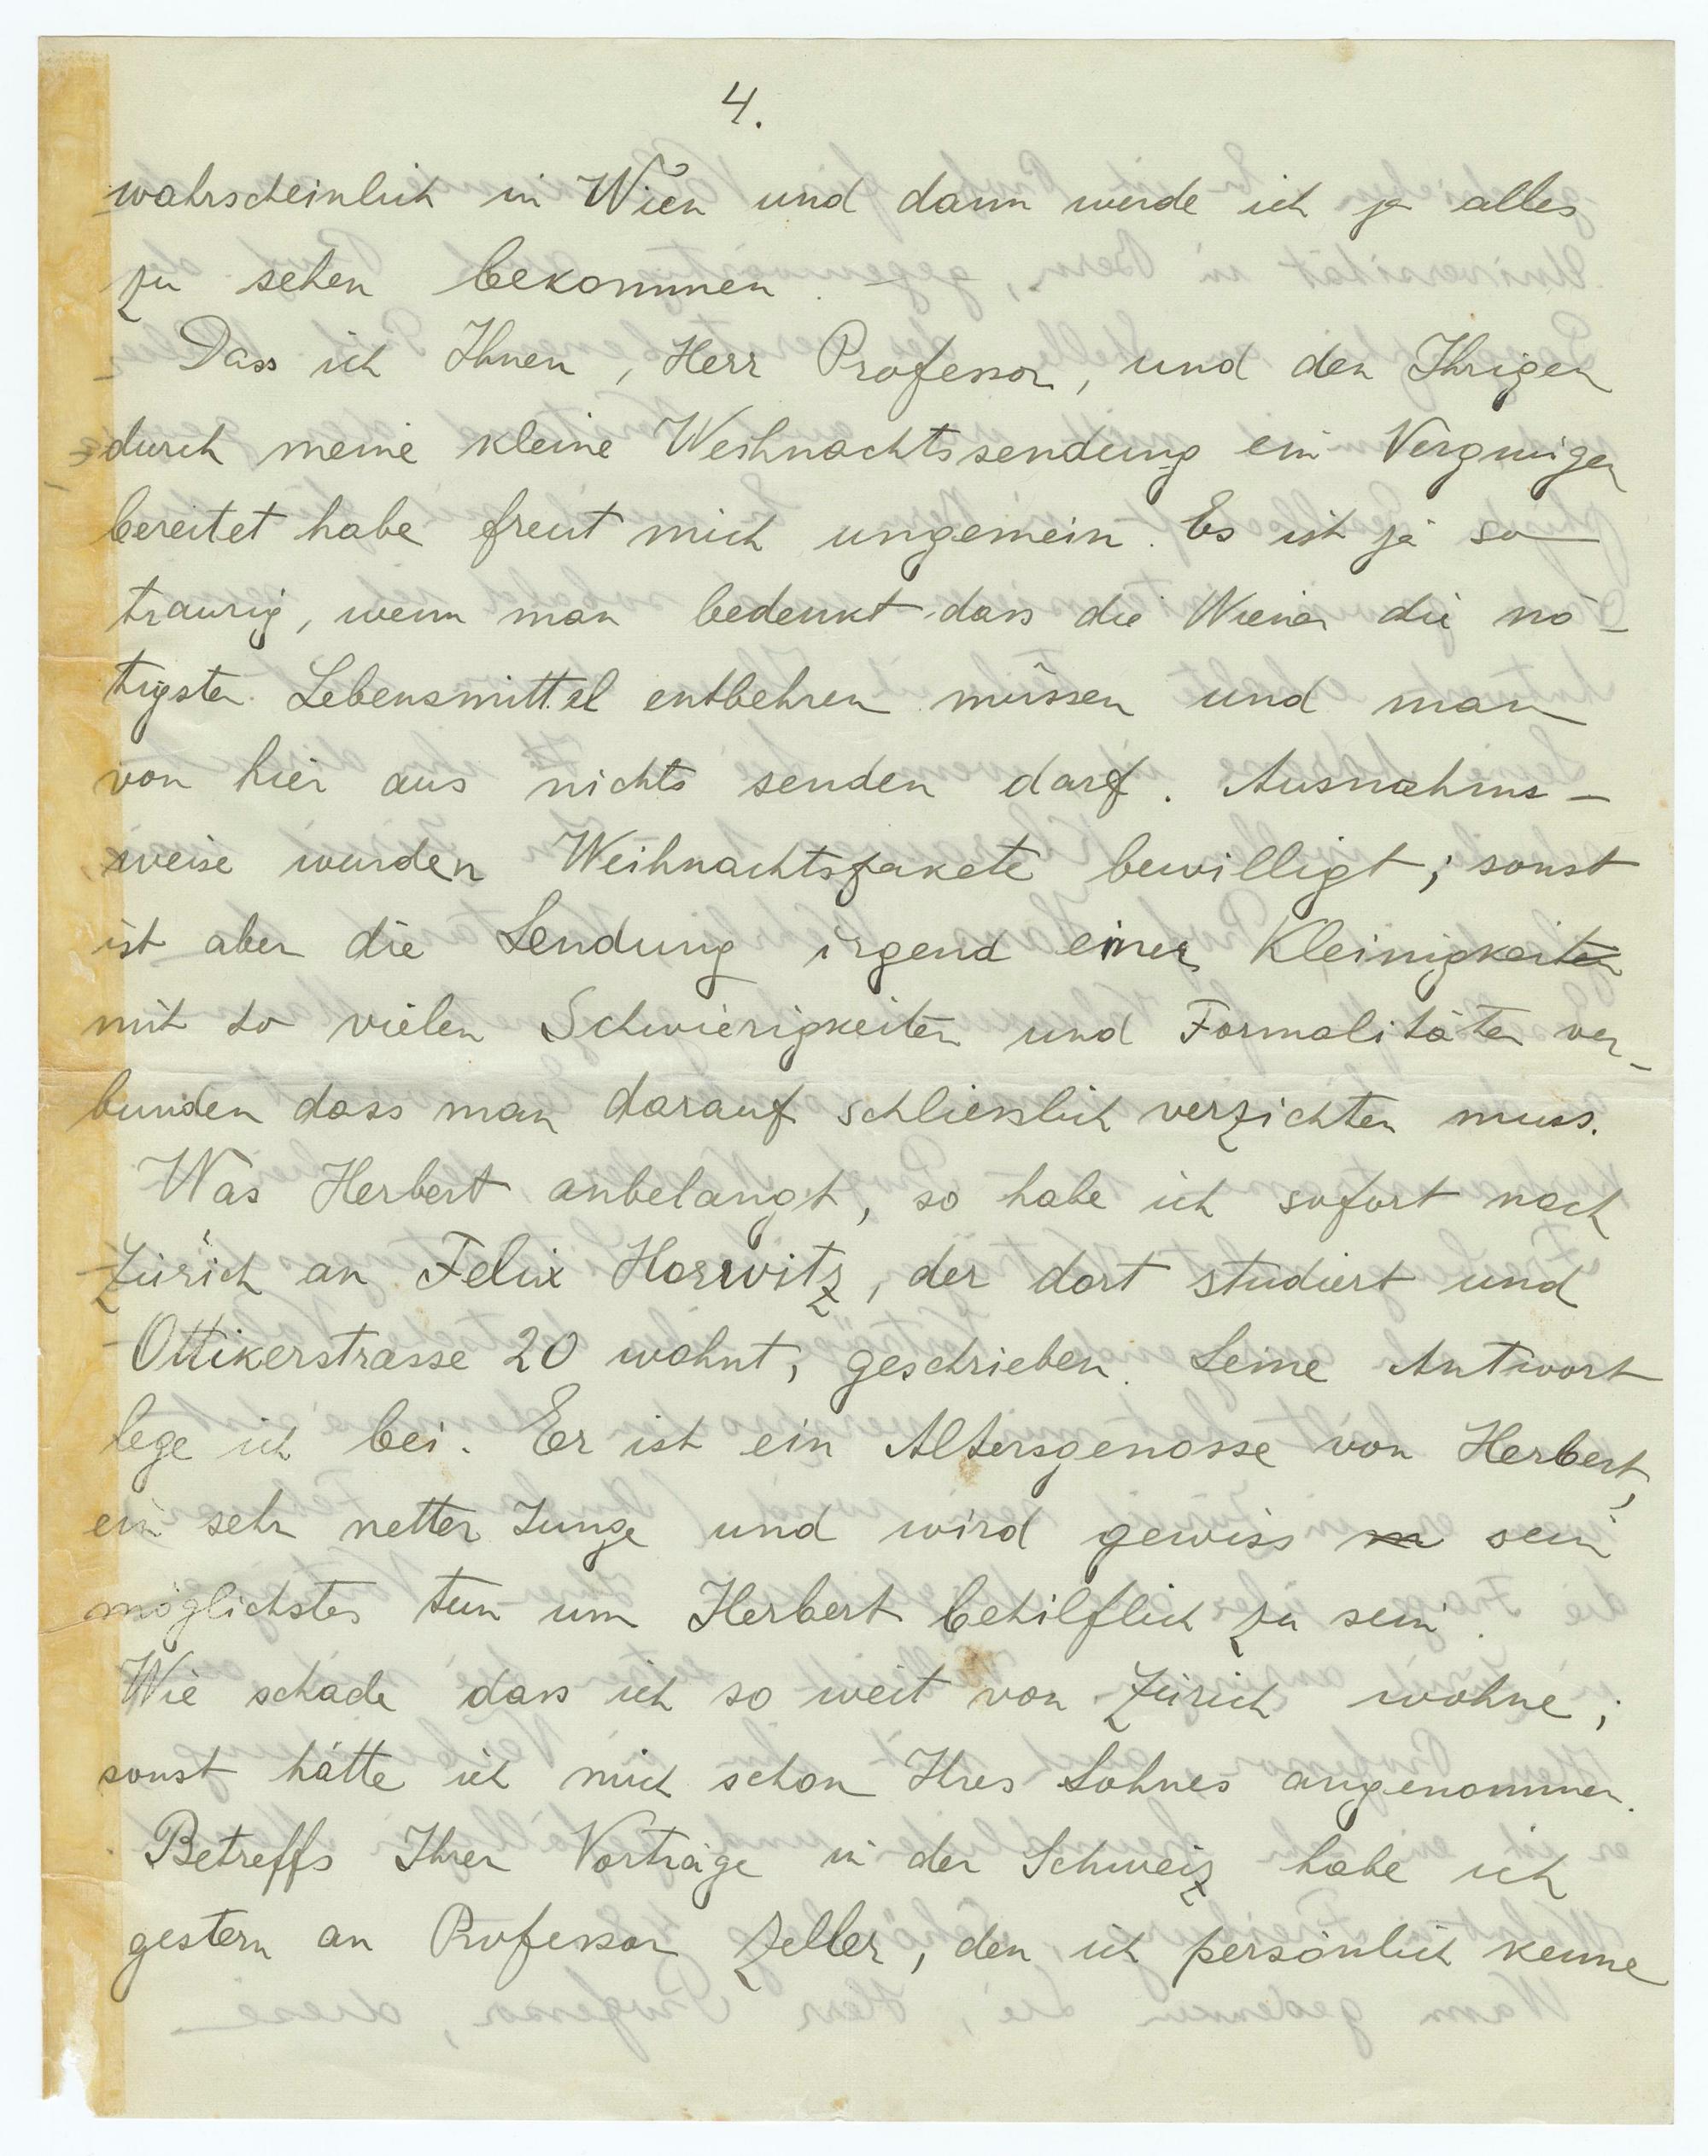 4.
wahrscheinlich in Wien und dann werde ich ja alles
zu sehen bekommen. –
Dass ich Ihnen, Herr Professor, und den Ihrigen
durch meine kleine Weihnachtssendung ein Vergnügen
bereitet habe freut mich ungemein. Es ist ja so
traurig, wenn man bedenkt dass die Wiener die nö-
tigsten Lebensmittel entbehren müssen und man
von hier aus nichts senden darf. Ausnahms-
weise wurden Weihnachtspakete bewilligt; sonst
ist aber die Sendung irgend einer Kleinigkeiten
mit so vielen Schwierigkeiten und Formalitäten ver-
bunden dass man darauf schliesslich verzichten muss.
Was Herbert anbelangt, so habe ich sofort nach
Zürich an Felix Horwitz, der dort studiert und
Ottikerstrasse 20 wohnt, geschrieben. Seine Antwort
lege ich bei. Er ist ein Altersgenosse von Herbert,
ein sehr netter Junge und wird gewiss m sein
möglichstes tun um Herbert behilflich zu sein.
Wie schade dass ich so weit von Zürich wohne;
sonst hätte ich mich schon Ihres Sohnes angenommen.
Betreffs Ihrer Vorträge in der Schweiz habe ich
gestern an Professor Zeller, den ich persönlich kenne